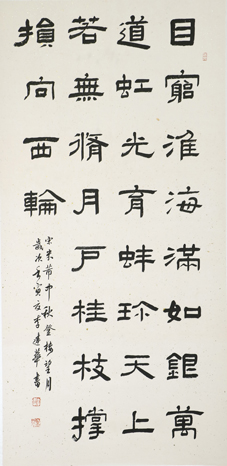 目窮淮海滿如銀萬
道虹光育蚌珍天上
若無脩月戶桂枝撐
損向西輪
宋米芾中秋登樓望月
歲次寅李建華書